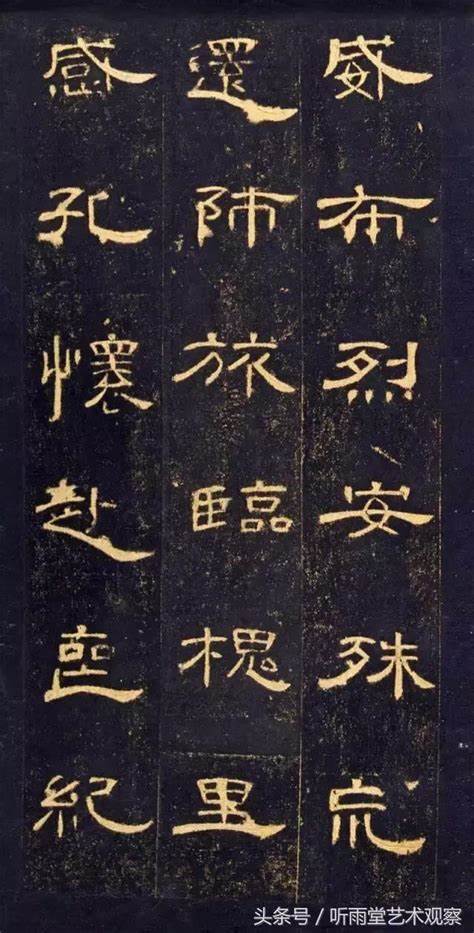 威布烈安殊巟
還師旅臨槐里
感孔懷赴喪紀
头条号 / 听雨堂艺术观察